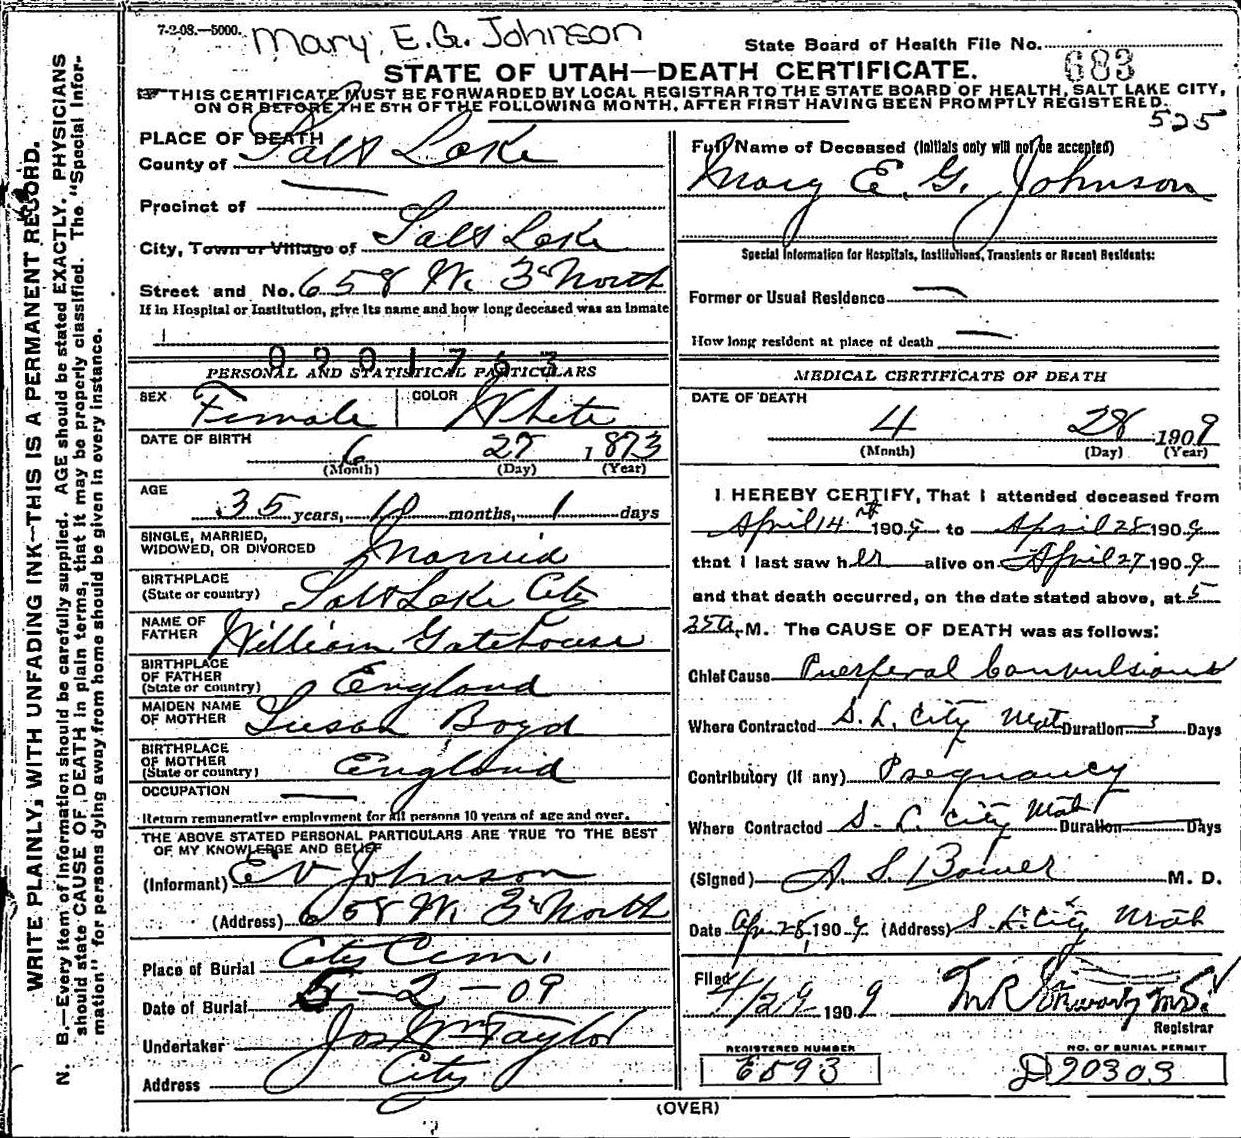 7-2-08.—5000.
Mary E.G. Johnson
State Board of Health File No. 683
STATE OF UTAH—DEATH CERTIFICATE.
THIS CERTIFICATE MUST BE FORWARDED BY LOCAL REGISTRAR TO THE STATE BOARD OF HEALTH, SALT LAKE CITY,
ON OR BEFORE THE 5TH OF THE FOLLOWING MONTH, AFTER FIRST HAVING BEEN PROMPTLY REGISTERED.
525
WRITE PLAINLY, WITH UNFADING INK—THIS IS A PERMANENT RECORD.
N. B.—Every item of Information should be carefully supplied. AGE should be stated EXACTLY. PHYSICIANS
should state CAUSE OF DEATH in plain terms, that it may be properly classified. The "Special Infor-
mation" for persons dying away from home should be given in every instance.
PLACE OF DEATH
County of Salt Lake
Precinct of —
City, Town or Village of Salt Lake
Street and No. 658 W. 3rd North
If in Hospital or Institution, give its name and how long deceased was an inmate
0201763
PERSONAL AND STATISTICAL PARTICULARS
SEX Female COLOR White
DATE OF BIRTH 6 27 1873
(Month) (Day) (Year)
AGE 35 years, 10 months, 1 days
SINGLE, MARRIED,
WIDOWED, OR DIVORCED Married
BIRTHPLACE
(State or country) Salt Lake City
NAME OF
FATHER William Gatehouse
BIRTHPLACE
OF FATHER
(State or country) England
MAIDEN NAME
OF MOTHER Susan Boyd
BIRTHPLACE
OF MOTHER
(State or country) England
OCCUPATION —
Return remunerative employment for all persons 10 years of age and over.
THE ABOVE STATED PERSONAL PARTICULARS ARE TRUE TO THE BEST
OF MY KNOWLEDGE AND BELIEF
(Informant) E V Johnson
(Address) 658 W. 3rd North
Place of Burial City Cem.
Date of Burial 5-2-09
Undertaker Jos Wm Taylor
Address City
Full Name of Deceased (Initials only will not be accepted)
Mary E. G. Johnson
Special Information for Hospitals, Institutions, Transients or Recent Residents:
Former or Usual Residence —
How long resident at place of death —
MEDICAL CERTIFICATE OF DEATH
DATE OF DEATH
4 28 1909
(Month) (Day) (Year)
I HEREBY CERTIFY, That I attended deceased from
April 14th 1909 to April 28 1909
that I last saw her alive on April 27 1909
and that death occurred, on the date stated above, at 5
35a. M. The CAUSE OF DEATH was as follows:
Chief Cause Puerferal Convulsions
Where Contracted S. L. City Utah Duration 3 Days
Contributory (if any) Pregnancy
Where Contracted S. L. City Utah Duration — Days
(Signed) A. S. Bower M. D.
Date Apr 28, 1909 (Address) S. L. City Utah
Filed
4/29 1909 M.D.
Registrar
REGISTERED NUMBER
E593
NO. OF BURIAL PERMIT
D90303
(OVER)